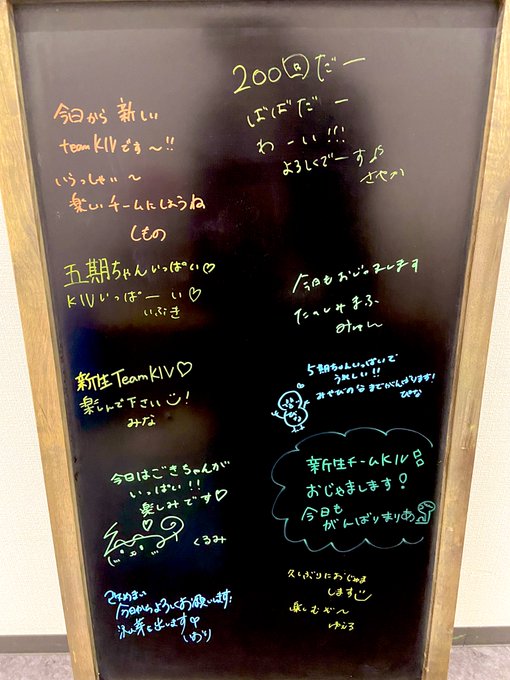 今日から新しい
teamKIVです〜!!
いらっしゃい〜
楽しいチームにしようね
しもの
五期ちゃんいっぱい♡
KIVいっぱーい♡
いぶき
新生TeamKIV♡
楽しんで下さい!
みな
今日はごきちゃんが
いっぱい!!
楽しみです♡
くるみ
今日からよろしくお願いします!
沢山芽を出します
いおり
200回だー
ばばだー
わーい!!!
よろしくでーす♪
さやか
今日もおじゃまします
たのしみまふ
みゅん
5期ちゃんいっぱいで
うれしい!!
みやびの分までがんばります!
ぴな
新生チームKIV
おじゃまします!
今日も
がんばりまりあ
久しぶりにおじゃま
します
楽しむぞ〜